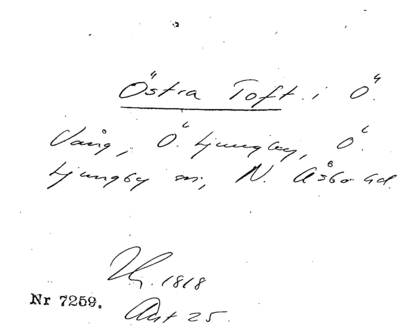 Östra Toft i Ö.
Vång, Ö. Ljungby, Ö.
Ljungby sn, N. Åsbo hd.
1818
Nr 7259. Akt 25.